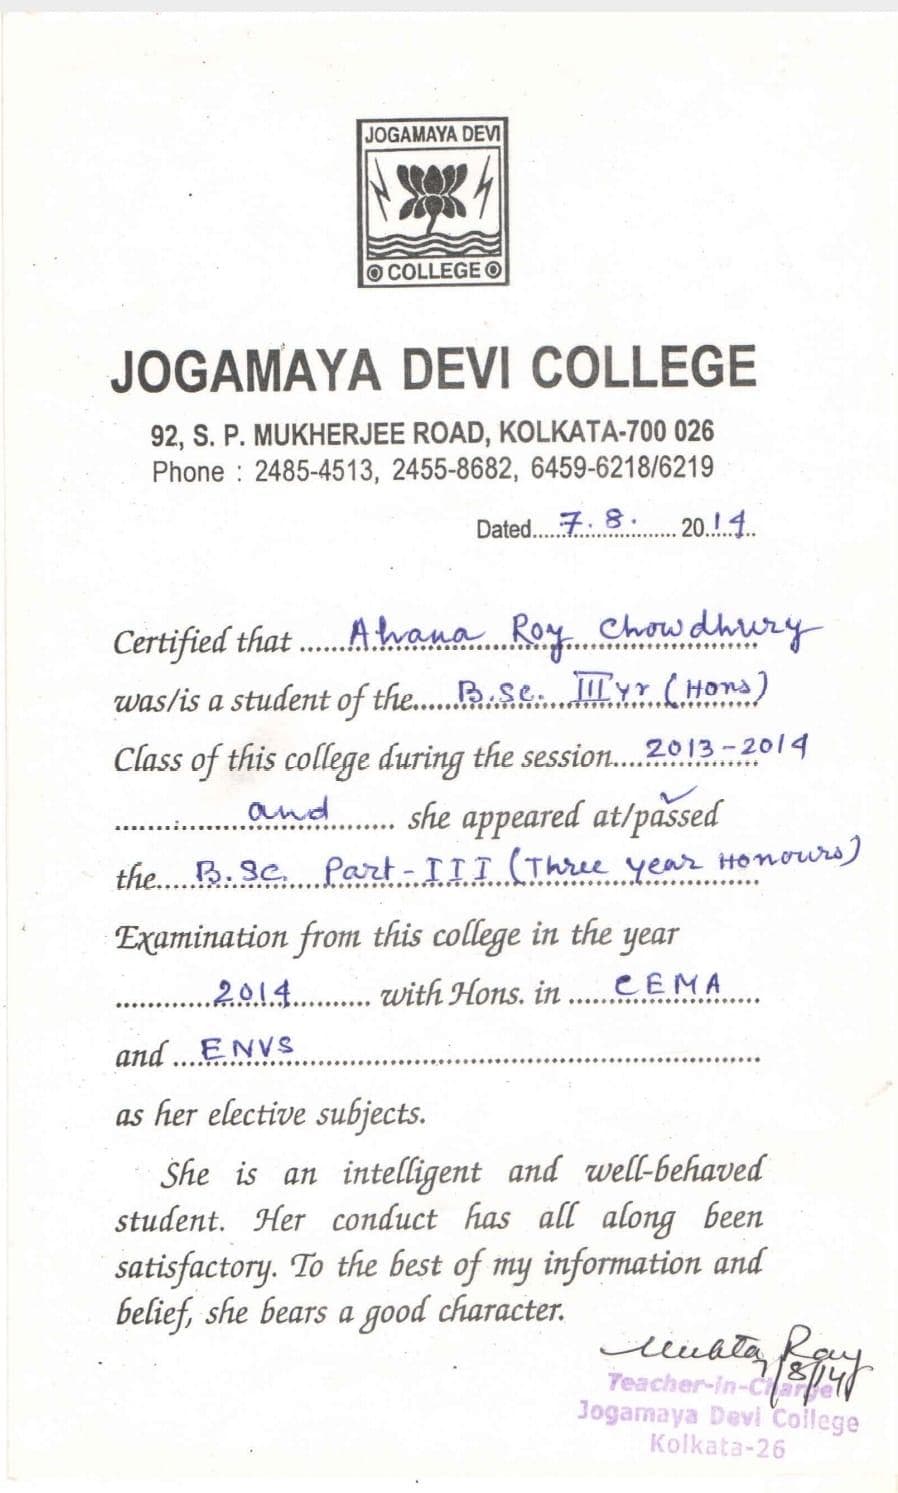 JOGAMAYA DEVI
COLLEGE
JOGAMAYA DEVI COLLEGE
92, S. P. MUKHERJEE ROAD, KOLKATA-700 026
Phone : 2485-4513, 2455-8682, 6459-6218/6219
Dated......7.8.......... 20.14..
Certified that ......Ahana Roy Chowdhury
was/is a student of the.....B.Sc. III yr (Hons)
Class of this college during the session....2013-2014
...............and............ she appeared at/passed
the.....B.Sc. Part-III (Three year Honours)
Examination from this college in the year
............2014.......... with Hons. in ......CEMA....
and ...ENVS..................................................
as her elective subjects.
She is an intelligent and well-behaved
student. Her conduct has all along been
satisfactory. To the best of my information and
belief, she bears a good character.
Mukta Ray
/8/14
Teacher-in-Charge
Jogamaya Devi College
Kolkata-26